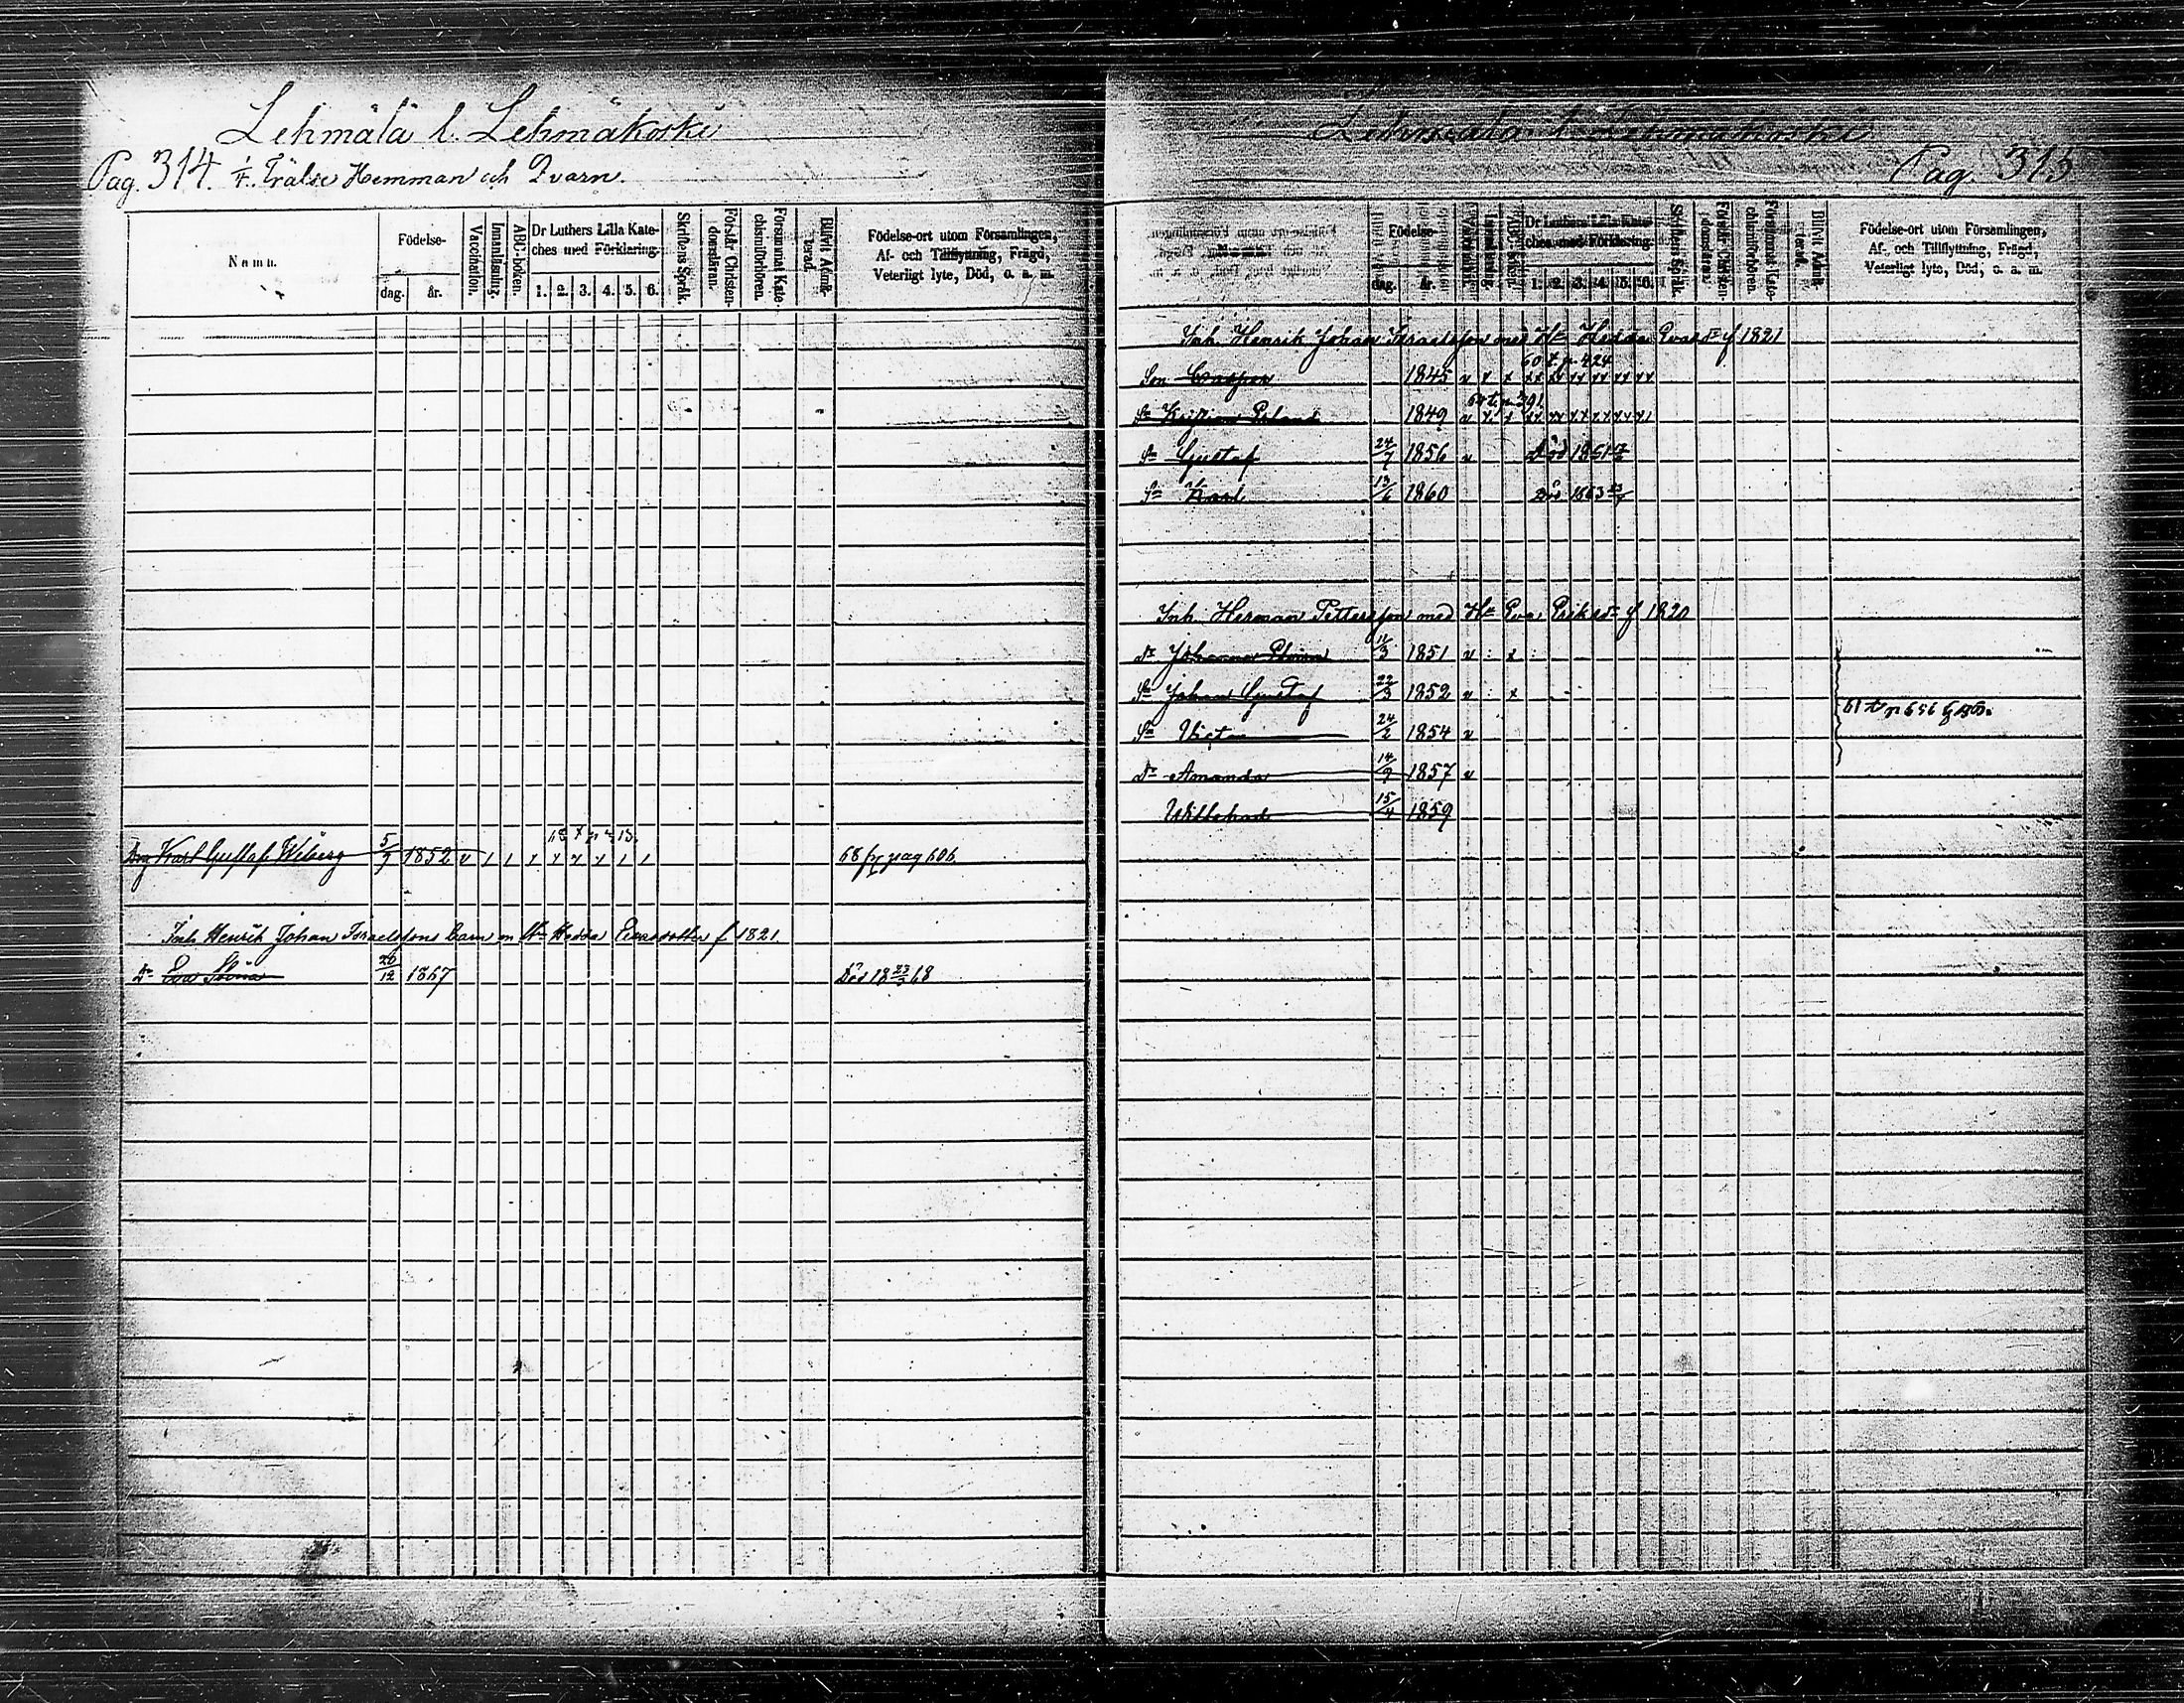 Lehmälä l. Lehmäkoski
Pag. 314. Frälse Hemman och Qvarn.
Namn.
Födelse-
dag. år.
Vaccination.
Innanläsning.
ABC-boken.
Dr Luthers Lilla Kate-
ches med Förklaring.
1. 2. 3. 4. 5. 6.
Skriftens Språk.
Förstår Christen-
domsläran.
Försummat Kate-
chismiförhören.
Blifvit Admit-
terad.
Födelse-ort utom Församlingen,
Af- och Tillflyttning, Frägd,
Veterligt lyte, Död, o. a. m.
Karl Gustaf Wiberg 5/7 1852 v 68 pag 606
Inh. Henrik Johan Israelssons barn m Hu Hedda f 1821.
Dr Eva Stina 26/12 1867 Död 18 23/3 68
Lehmälä l. Lehmäkoski
Pag. 315
Födelse-
dag. år.
Dr Luthers Lilla Kate-
ches med Förklaring.
1. 2. 3. 4. 5. 6.
Skriftens Språk.
Förstår Christen-
domsläran.
Försummat Kate-
chismiförhören.
Blifvit Admit-
terad.
Födelse-ort utom Församlingen,
Af- och Tillflyttning, Frägd,
Veterligt lyte, Död, o. a. m.
Inh. Henrik Johan Israelsson med Hu Hedda f 1821
60 t p 424
Son Casper 1845 v
64 t p 391
1849 v
Sn Gustaf 24/7 1856 v Död 1861
Sn Karl 13/6 1860 Död 1863
Inh. Herman Pettersson med Hu Eva Eriksdr f 1820
Dr Johanna 11/3 1851 v x
Sn Johan Gustaf 22/3 1852 v x
61 t p 656
Sn Victor 24/2 1854 v
Dr Amanda 14/9 1857 v
Willehad 15/4 1859